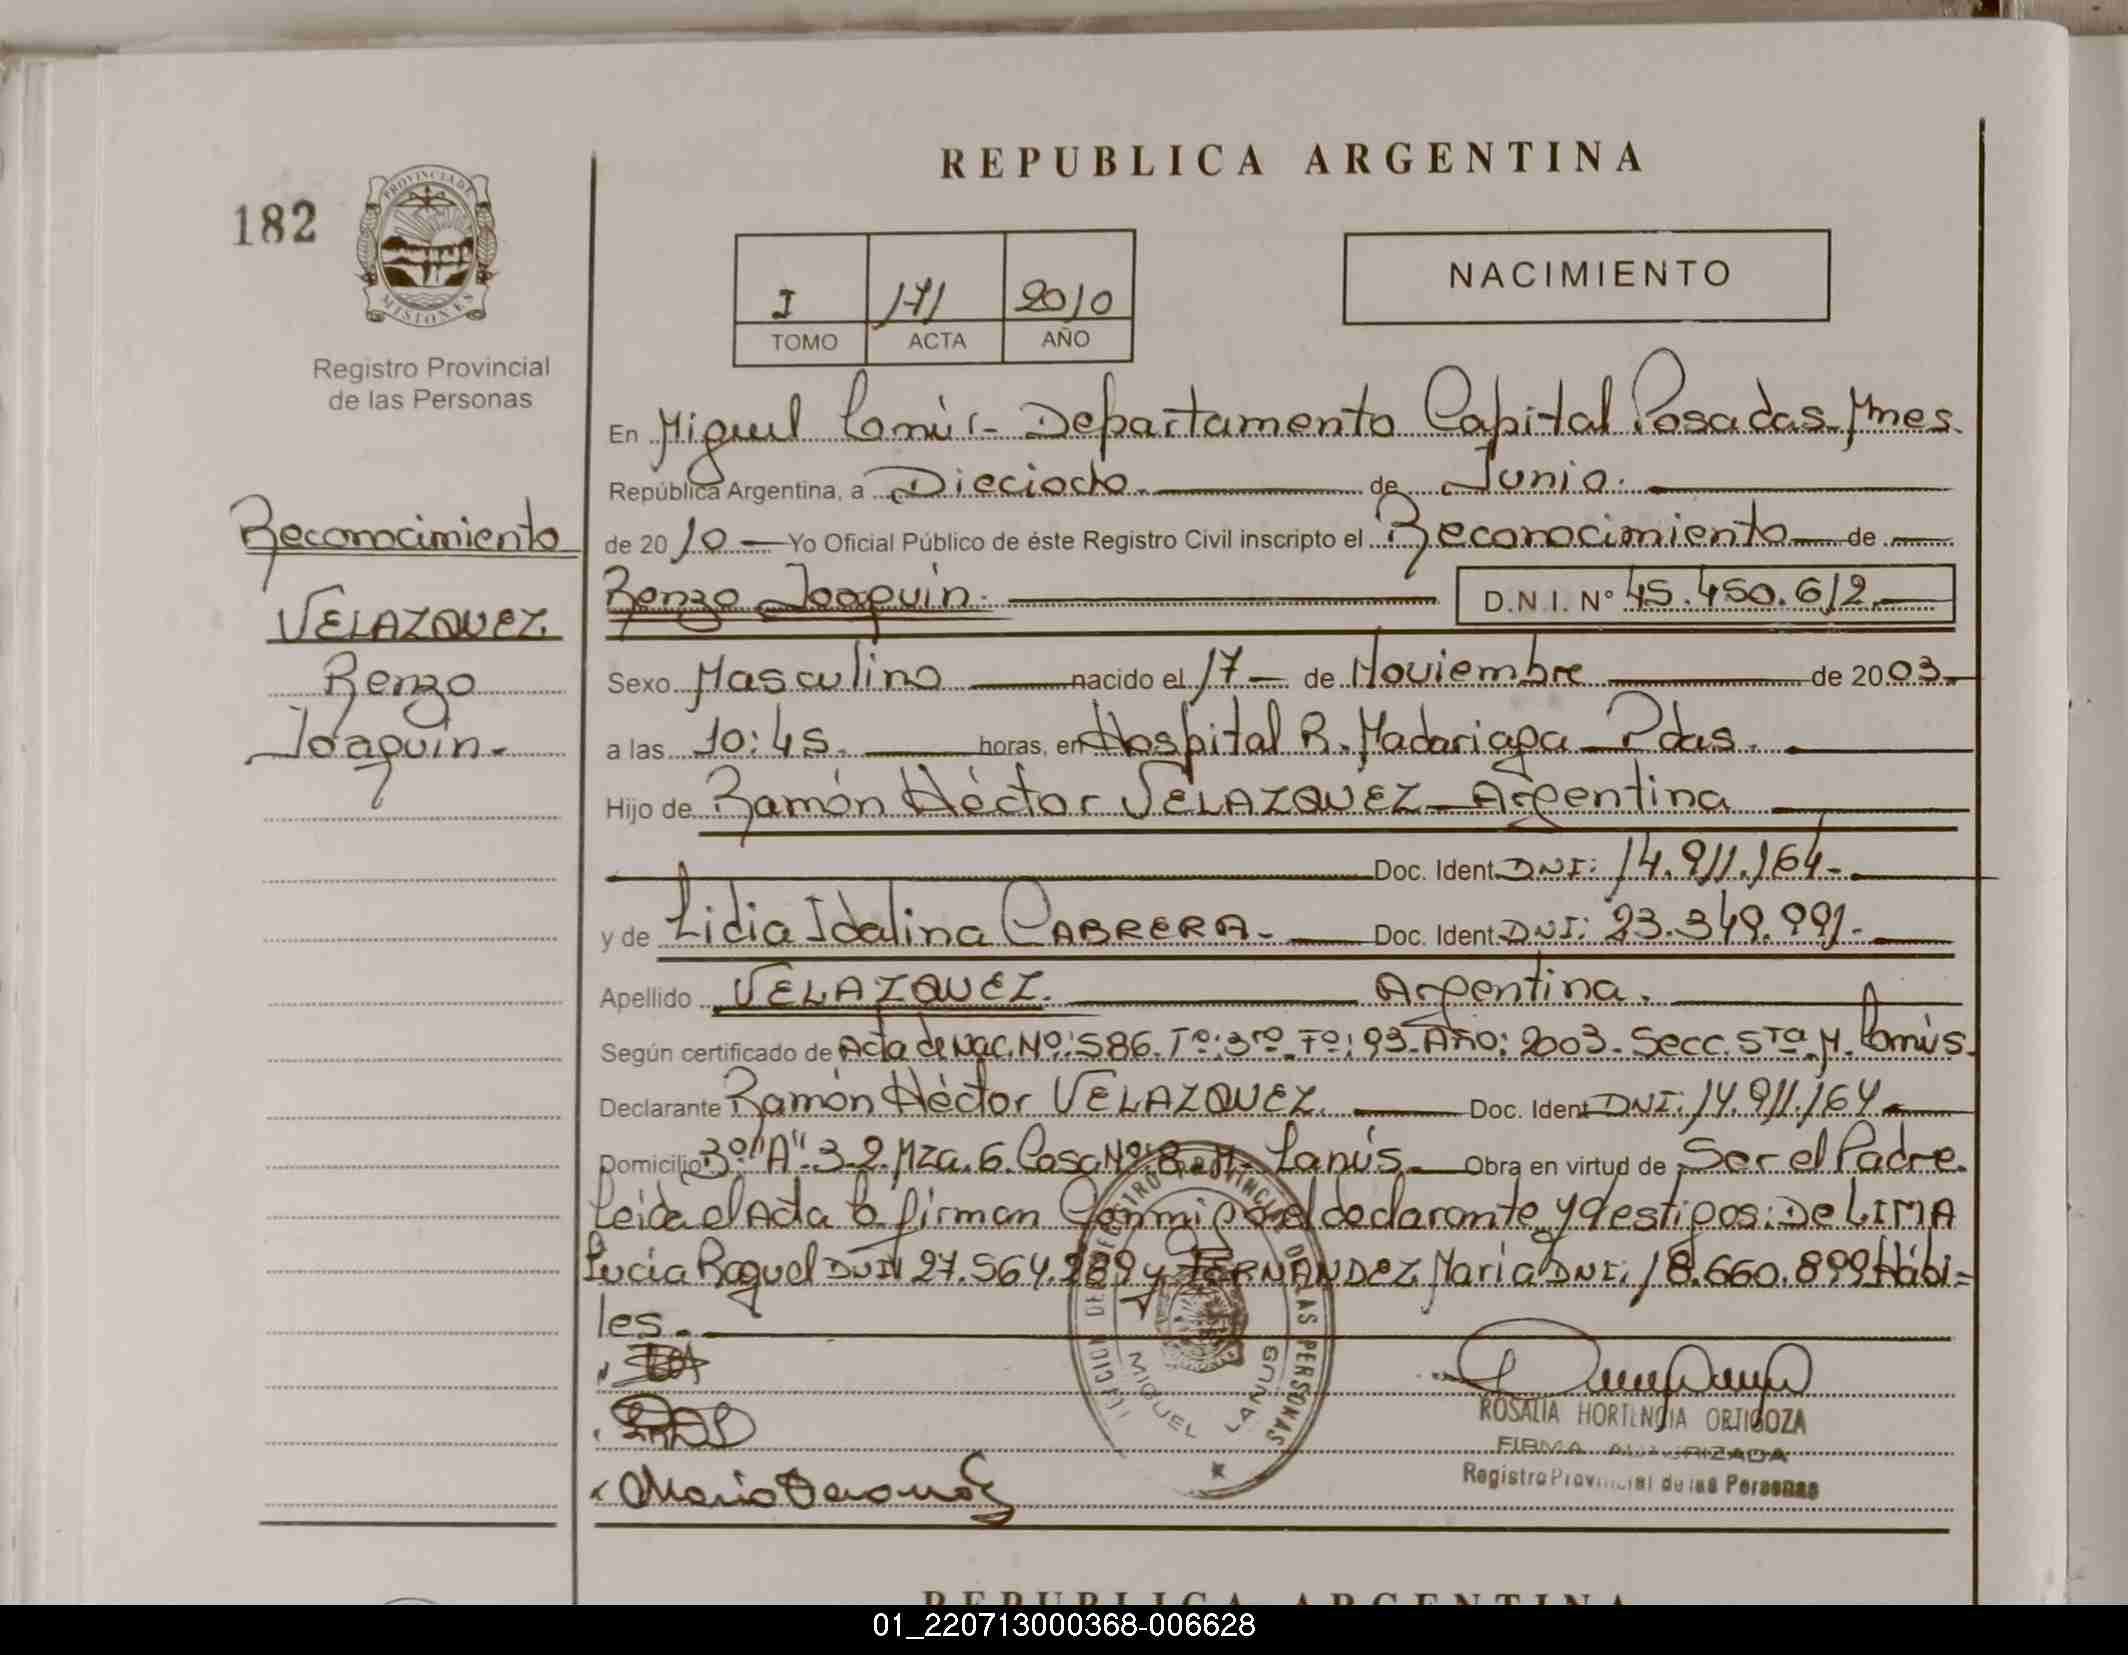 REPUBLICA ARGENTINA
182
PROVINCIA DE MISIONES
NACIMIENTO
I 171 2010
TOMO ACTA AÑO
Registro Provincial
de las Personas
En Miguel Lanús - Departamento Capital Posadas Mnes.
República Argentina, a Dieciocho de Junio.
de 2010 Yo Oficial Público de éste Registro Civil inscripto el Reconocimiento de
Renzo Joaquín. D.N.I. N° 45.450.612
Reconocimiento
VELAZQUEZ.
Renzo
Joaquín.
Sexo Masculino nacido el 17 de Noviembre de 2003
a las 10:45. horas, en Hospital R. Madariaga Pdas.
Hijo de Ramón Héctor VELAZQUEZ Argentina
Doc. Ident. DNI: 14.911.164
y de Lidia Idalina CABRERA. Doc. Ident. DNI: 23.349.991.
Apellido VELAZQUEZ. Argentina.
Según certificado de Acta de Nac. Nº: 586. Tº: 3ro. Fº: 93. Año: 2003. Secc. 5ta. M. Lanús.
Declarante Ramón Héctor VELAZQUEZ. Doc. Ident. DNI: 14.911.164
Domicilio 3º "A" 32 Mza. 6. Casa Nº: 8. M. Lanús. Obra en virtud de Ser el Padre.
Leída el Acta la firman Conmigo el declarante y testigos: De LIMA
Lucia Raquel DNI 27.564.289 y FERNANDEZ Maria DNI: 18.660.899 Hábi=
les.
MIGUEL LANUS
ROSALIA HORTENCIA ORTIGOZA
FIRMA AUTORIZADA
Registro Provincial de las Personas
REPUBLICA ARGENTINA
01_220713000368-006628